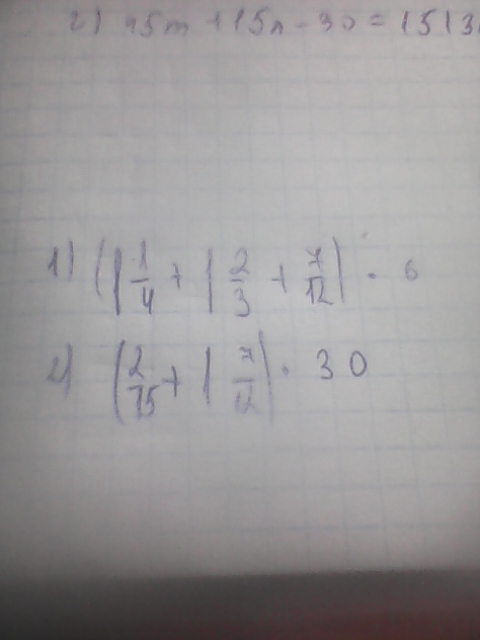 2) 45m + 15n - 30 = 15(3
1) (1 1/4 + 1 2/3 + 7/12) · 6
2) (2/15 + 1 7/12) · 30